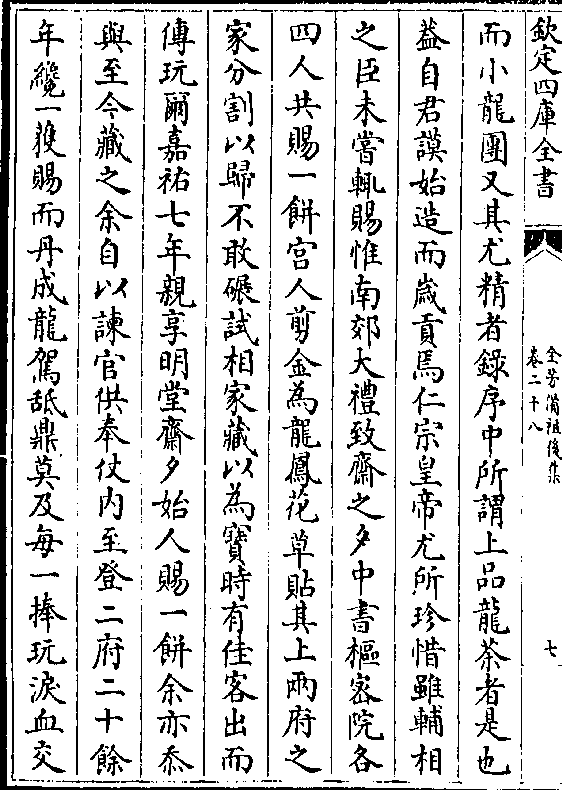 欽定四庫全書
全芳備祖後集
卷二十八
七
而小龍團又其尤精者錄序中所謂上品龍茶者是也
蓋自君謨始造而歲貢焉仁宗皇帝尤所珍惜雖輔相
之臣未嘗輒賜惟南郊大禮致齋之夕中書樞密院各
四人共賜一餅宮人剪金為龍鳳花草貼其上兩府之
家分割以歸不敢碾試相家藏以為寶時有佳客出而
傳玩爾嘉祐七年親享明堂齋夕始人賜一餅余亦忝
與至今藏之余自以諫官供奉仗内至登二府二十餘
年纔一獲賜而丹成龍駕舐鼎莫及每一捧玩淚血交